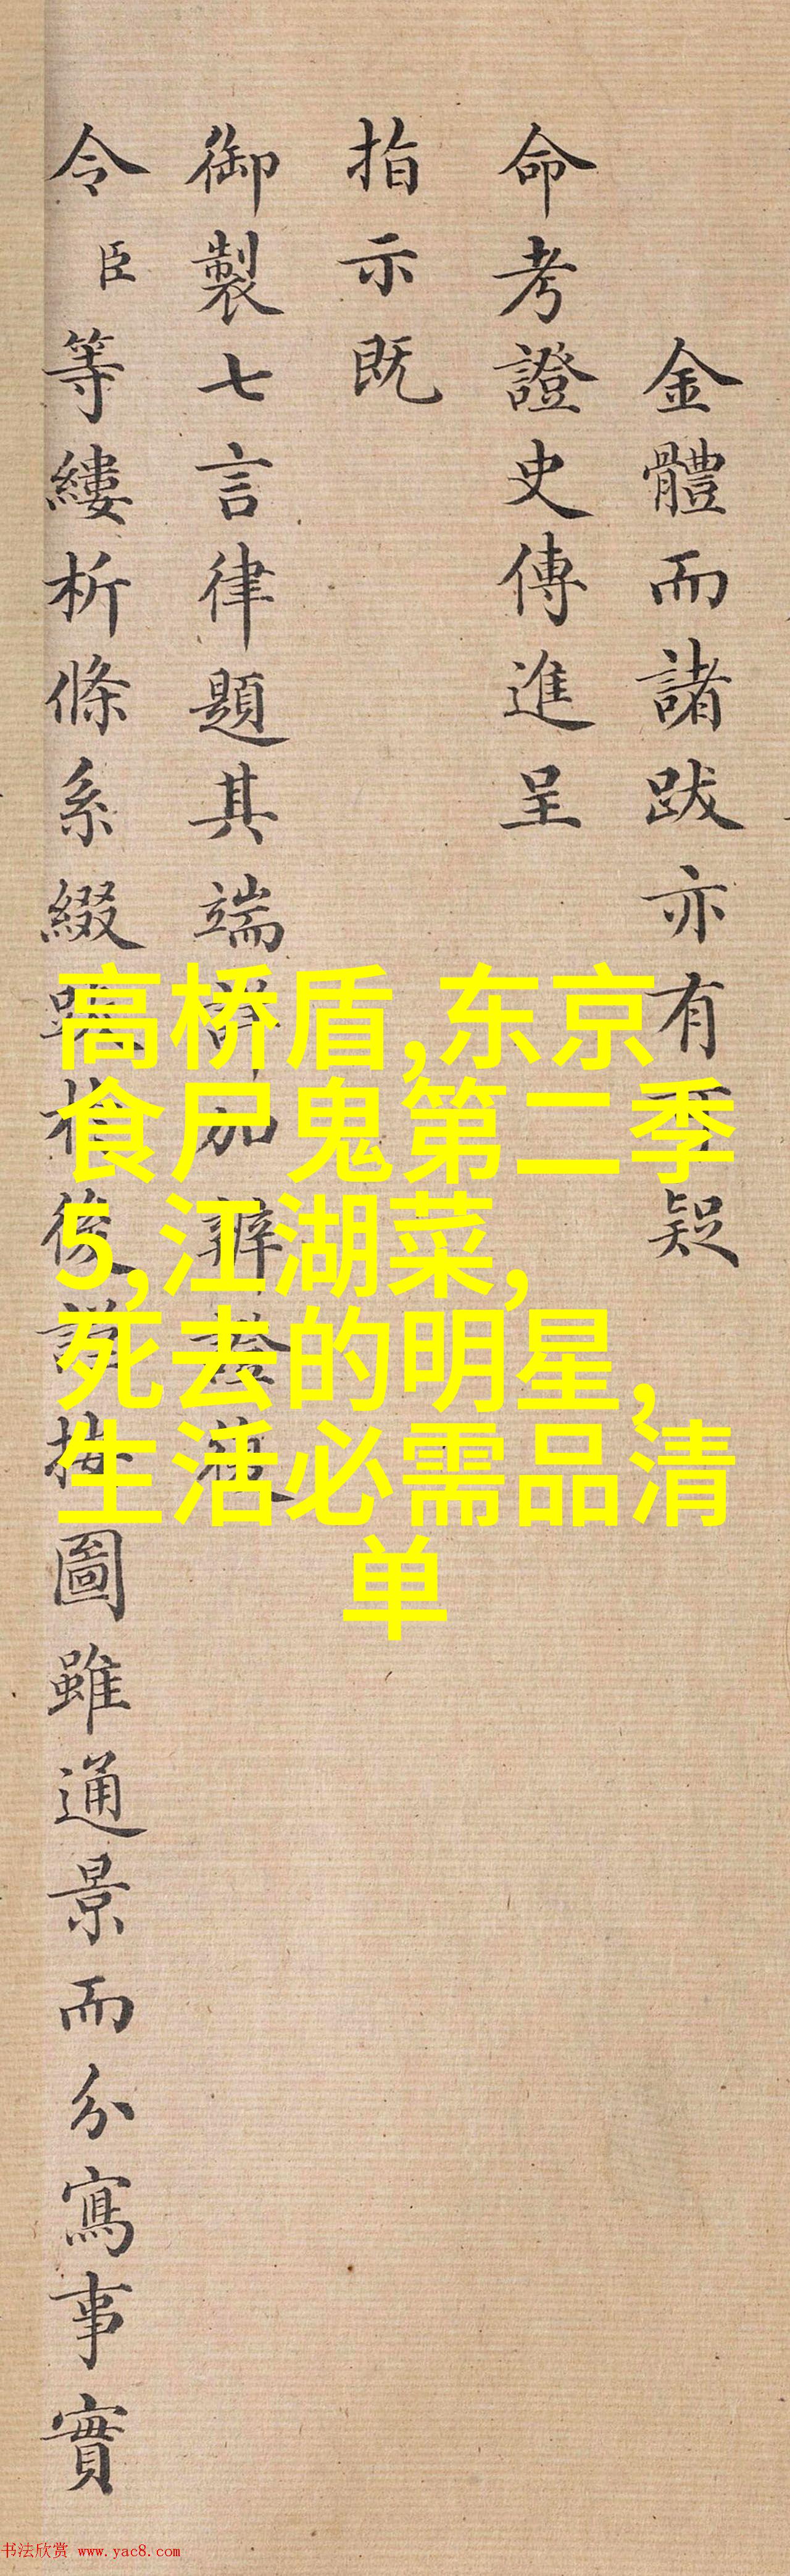 金體而諸跋亦有疑
命考證史傳進呈
指示既
御製七言律題其端詳加辨證復
令臣等縷析條系綴跋於後謹按圖雖通景而分寫事實
高桥盾,东京
食尸鬼第二季
5,江湖菜,
死去的明星,
生活必需品清
单
书法欣赏 www.yac8.com